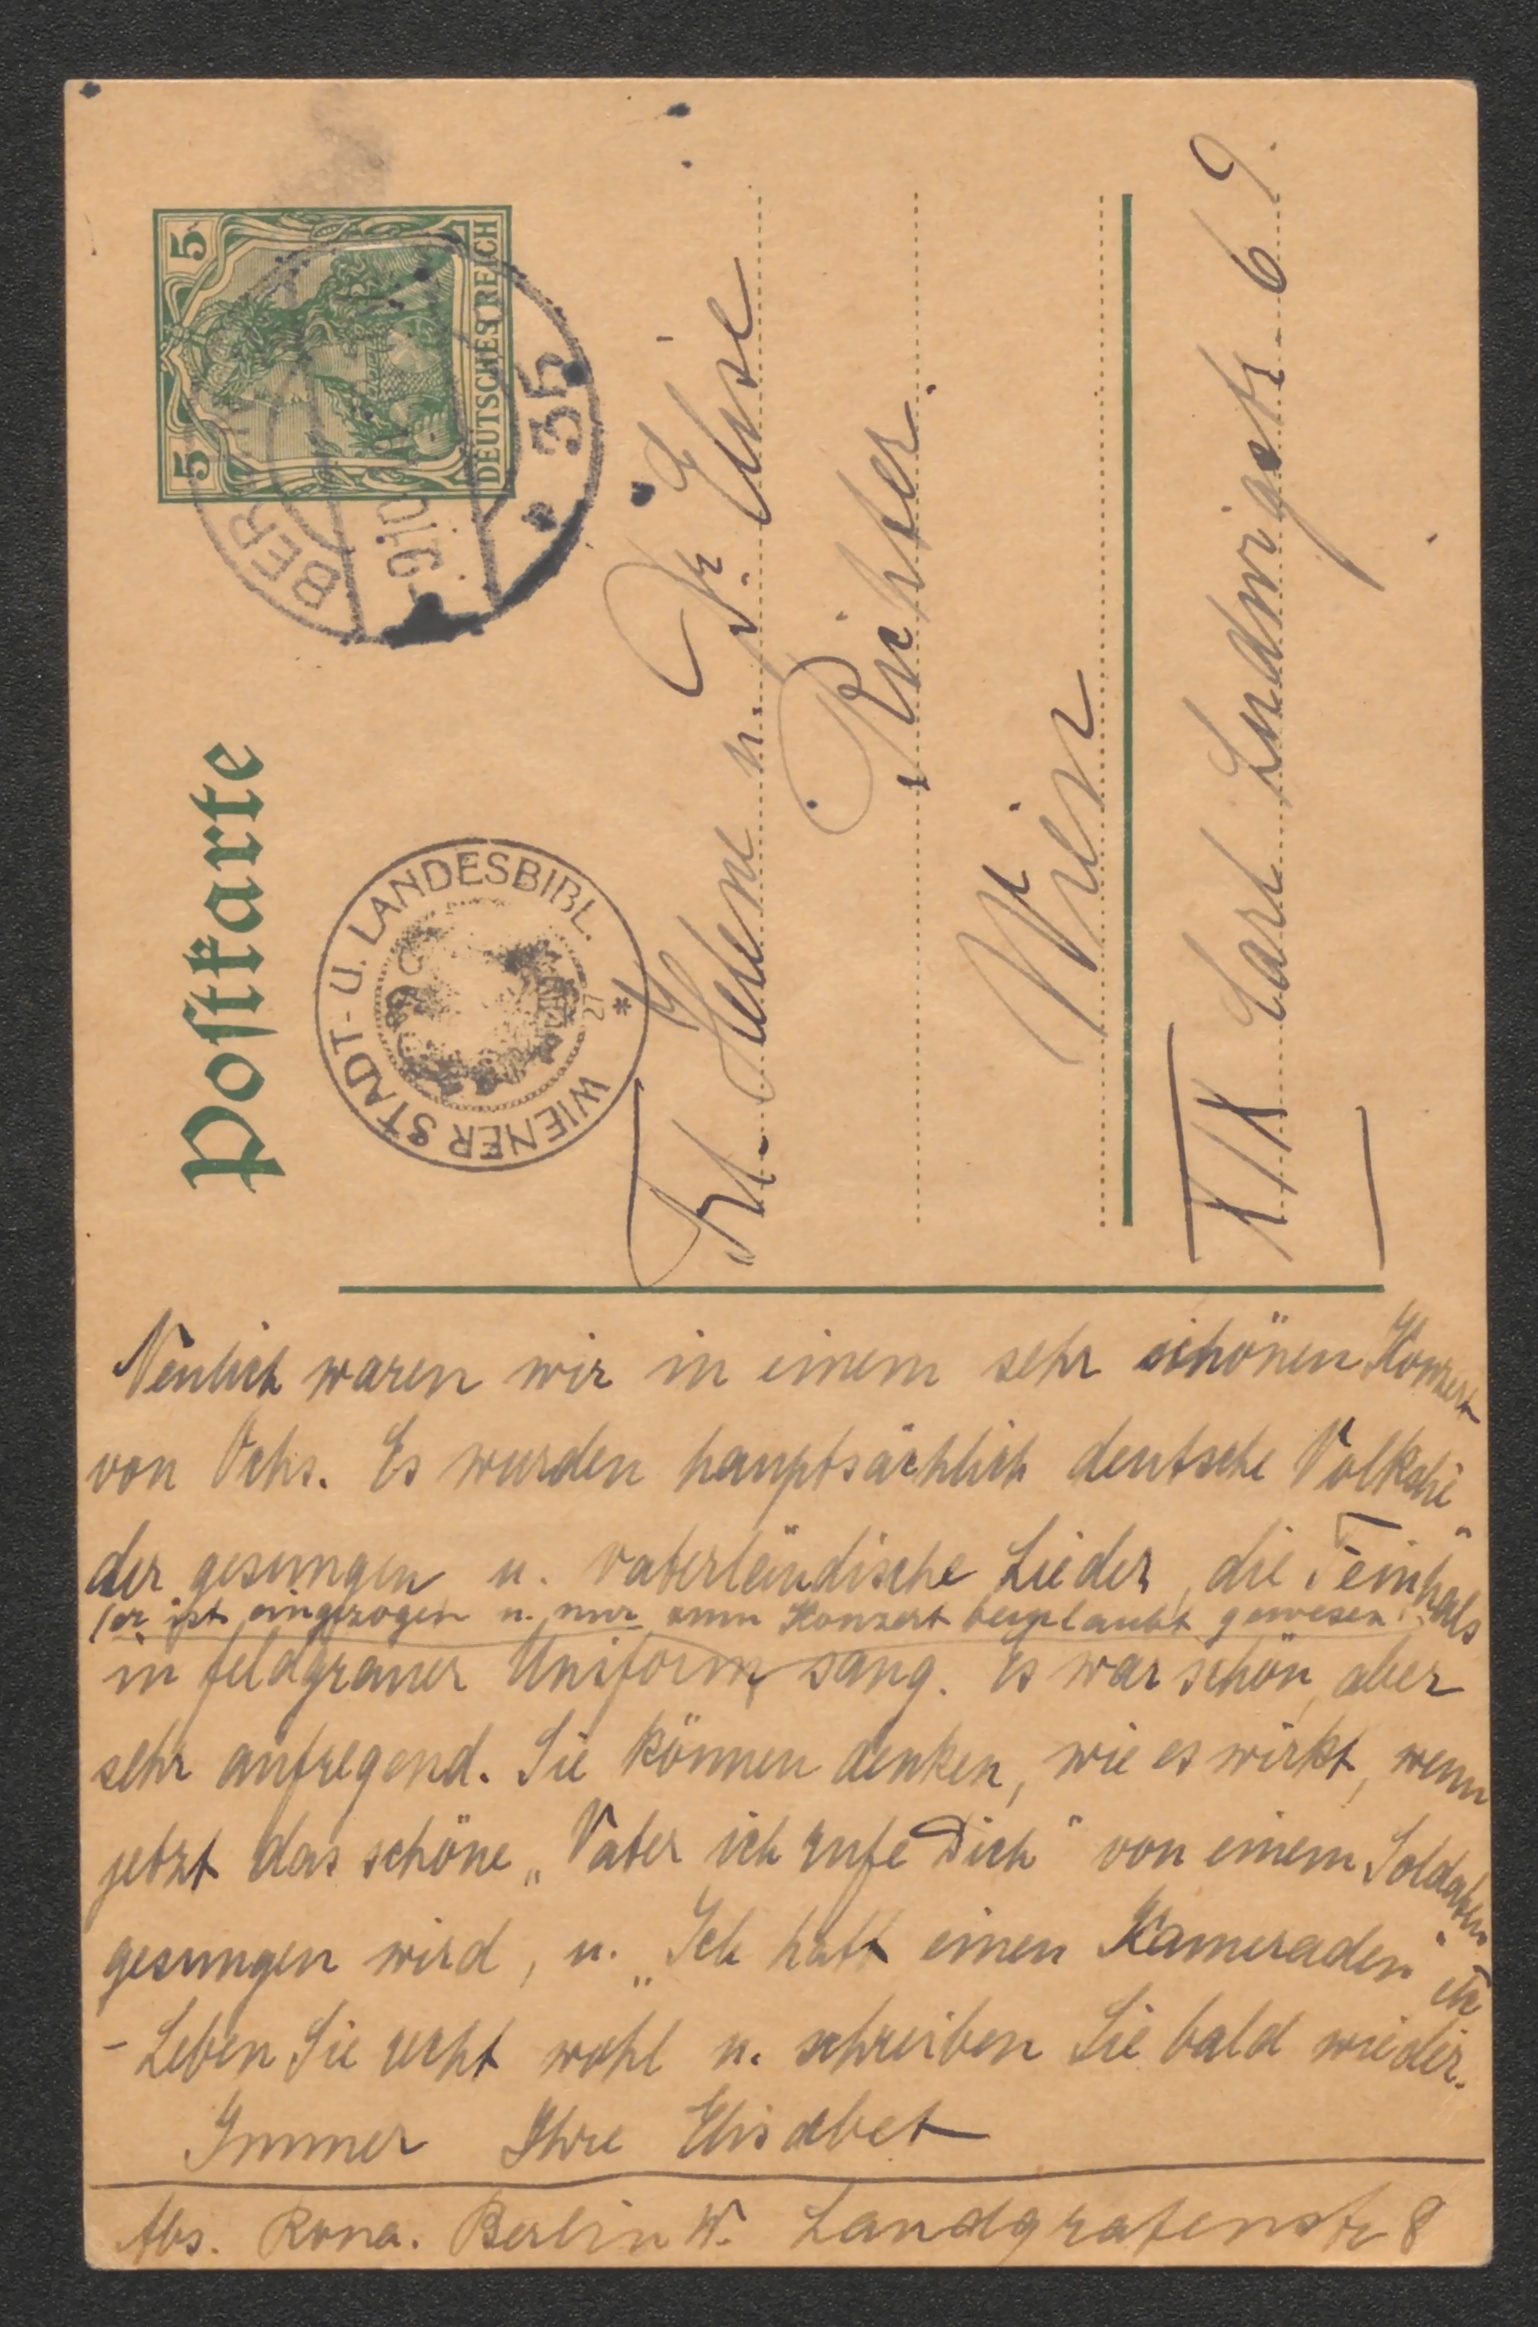 Postkarte
5 5
DEUTSCHES REICH
BERLIN
* 35
WIENER STADT- U. LANDESBIBL. *
27
Frl. Helene u. Dr. Elise
Richter.
Wien
XIX Carl Ludwigstr. 69.
Neulich waren wir in einem sehr schönen Konzert
von Ochs. Es wurden hauptsächlich deutsche Volkslie-
der gesungen u. vaterländische Lieder, die Feinhals
(er ist eingezogen u. nur zum Konzert beurlaubt gewesen)
in feldgrauer Uniform sang. Es war schön, aber
sehr aufregend. Sie können denken, wie es wirkt, wenn
jetzt das schöne „Vater ich rufe Dich" von einem Soldaten
gesungen wird, u. „Ich hatt einen Kameraden" etc
- Leben Sie recht wohl u. schreiben Sie bald wieder.
Immer Ihre Elisabet
Abs. Rona. Berlin W. Landgrafenstr 8